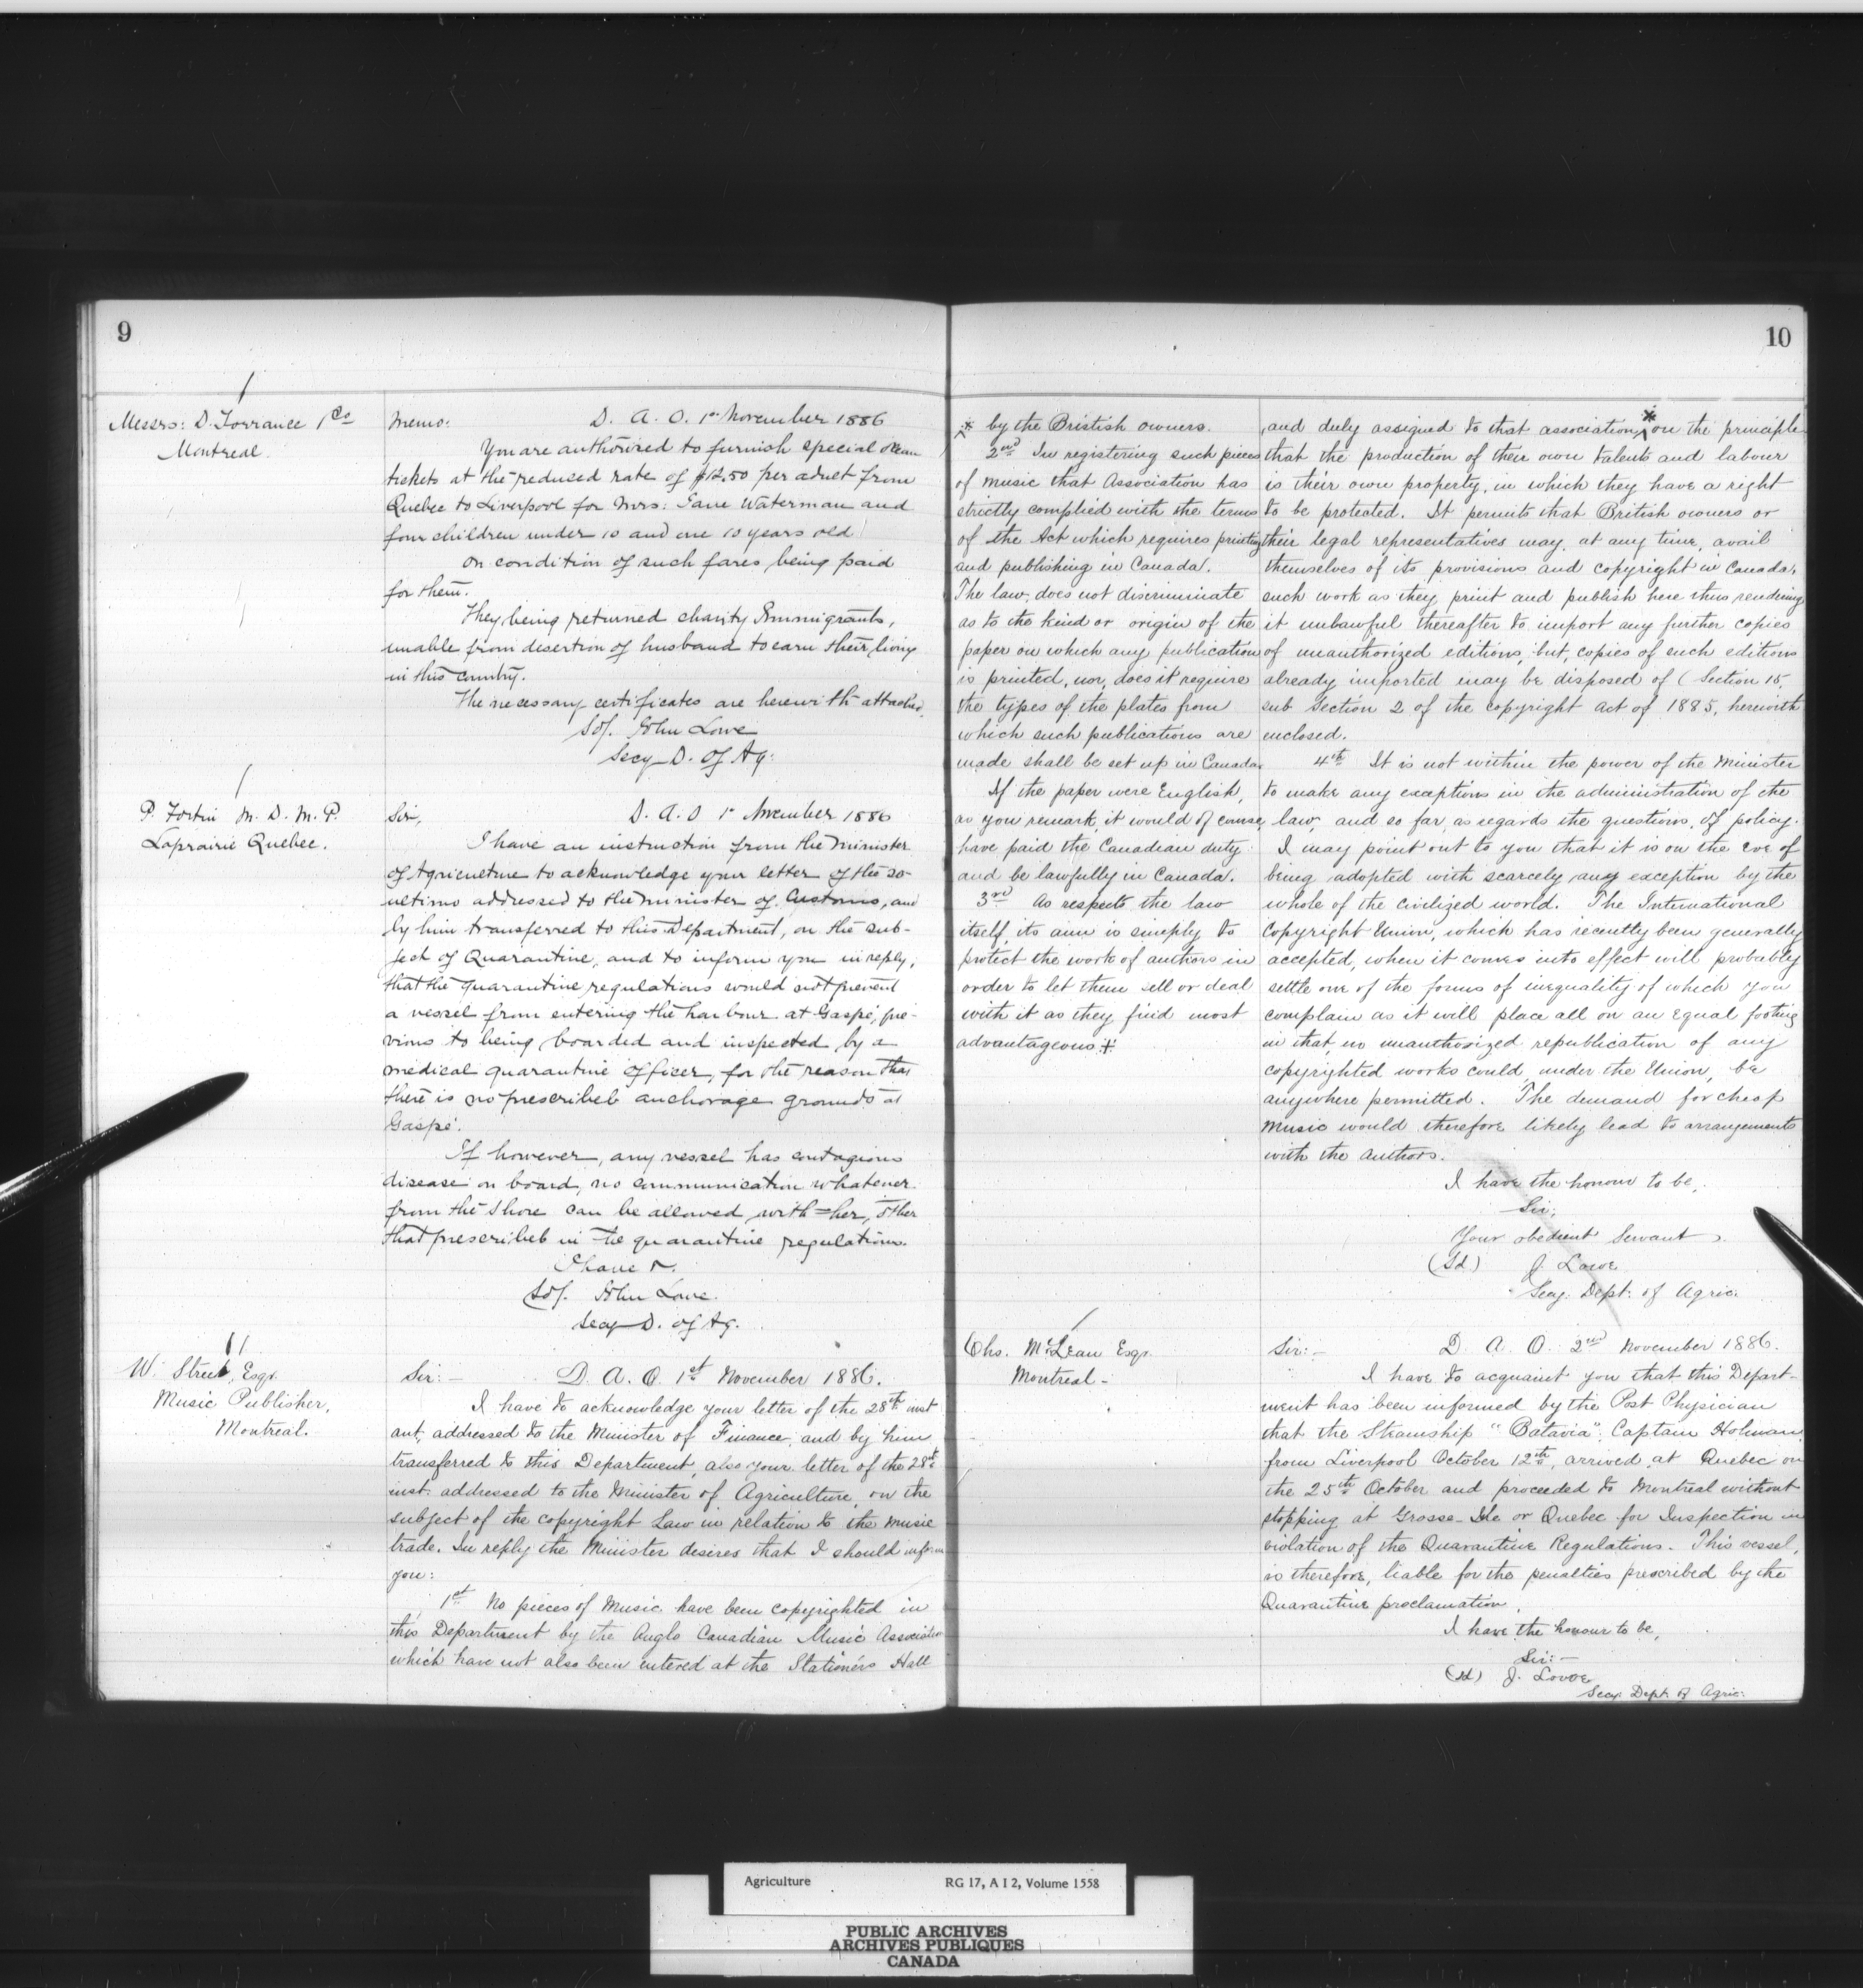 9
Messrs: D. Torrance & Co
Montreal.
Memo: D. A. O. 1st November 1886
You are authorized to furnish special ocean
tickets at the reduced rate of $12.50 per adult from
Quebec to Liverpool for Mrs: Jane Waterman and
four children under 10 and one 10 years old
on condition of such fares being paid
for them.
They being returned charity Immigrants,
unable from desertion of husband to earn their living
in this country.
The necessary certificates are herewith attached.
Sd/. John Lowe
Secy D. of Ag:
P. Fortin M. D. M. P.
Laprairie Quebec.
Sir, D. A. O 1st November 1886
I have an instruction from the Minister
of Agriculture to acknowledge your letter of the 20
ultimo addressed to the Minister of Customs, and
by him transferred to this Department, on the sub-
ject of Quarantine, and to inform you in reply,
that the quarantine regulations would not prevent
a vessel from entering the harbour at Gaspé, pre-
vious to being boarded and inspected by a
medical quarantine officer, for the reason that
there is no prescribed anchorage grounds at
Gaspé.
If however, any vessel has contagious
disease on board, no communication whatever
from the shore can be allowed with her, other
that prescribed in the quarantine regulations.
I have &.
(Sd/. John Lowe.
Secy D. of Ag.
W. Street, Esqr.
Music Publisher,
Montreal.
Sir:— D. A. O. 1st November 1886.
I have to acknowledge your letter of the 28th inst
ant, addressed to the Minister of Finance, and by him
transferred to this Department, also your letter of the 28th
inst. addressed to the Minister of Agriculture, on the
subject of the copyright Law in relation to the music
trade. In reply the Minister desires that I should inform
you:
1st No pieces of Music have been copyrighted in
this Department by the Anglo Canadian Music Association
which have not also been entered at the Stationers Hall
10
* by the Bristish owners.
2nd In registering such pieces
of music that Association has
strictly complied with the terms
of the Act which requires printing
and publishing in Canada.
The law, does not discriminate
as to the kind or origin of the
paper on which any publication
is printed, nor, does it require
the types of the plates from
which such publications are
made shall be set up in Canada.
If the paper were English,
as you remark, it would of course,
have paid the Canadian duty
and be lawfully in Canada.
3rd As respects the law
itself, its aim is simply to
protect the work of authors in
order to let them sell or deal
with it as they find most
advantageous +
and duly assigned to that association, * on the principle
that the production of their own talents and labour
is their own property, in which they have a right
to be protected. It permits that British owners or
their legal representatives may, at any time, avail
themselves of its provisions and copyright in Canada,
such work as they print and publish here thus rendering
it unlawful thereafter to import any further copies
of unauthorized editions, but, copies of such editions
already imported may be disposed of (Section 15,
sub Section 2 of the copyright Act of 1885, herewith
enclosed.
4th It is not within the power of the Minister
to make any exceptions in the administration of the
law, and so far, as regards the questions, of policy.
I may point out to you that it is on the eve of
being adopted with scarcely any exception by the
whole of the civilized world. The International
Copyright Union, which has recently been generally
accepted, when it comes into effect will probably
settle one of the forms of inequality of which you
complain as it will place all on an equal footing
in that, no unauthorized republication of any
copyrighted works could, under the Union, be
anywhere permitted. The demand for cheap
Music would therefore likely lead to arrangements
with the authors.
I have the honour to be,
Sir,
Your obedient Servant,
(Sd) J. Lowe
Secy. Dept: of Agric:
Chs. McLean Esqr.
Montreal -
Sir:— D. A. O. 2nd November 1886.
I have to acquaint you that this Depart-
ment has been informed by the Post Physician
that the Steamship "Batavia", Captain Holman,
from Liverpool October 12th, arrived at Quebec on
the 25th October and proceeded to Montreal without
stopping at Grosse-Ile or Quebec for Inspection in
violation of the Quarantine Regulations. This vessel,
is therefore, liable for the penalties prescribed by the
Quarantine proclamation.
I have the honour to be,
Sir:—
(Sd) J. Lowe
Secy. Dept. of Agric:
Agriculture RG 17, A I 2, Volume 1558
PUBLIC ARCHIVES
ARCHIVES PUBLIQUES
CANADA